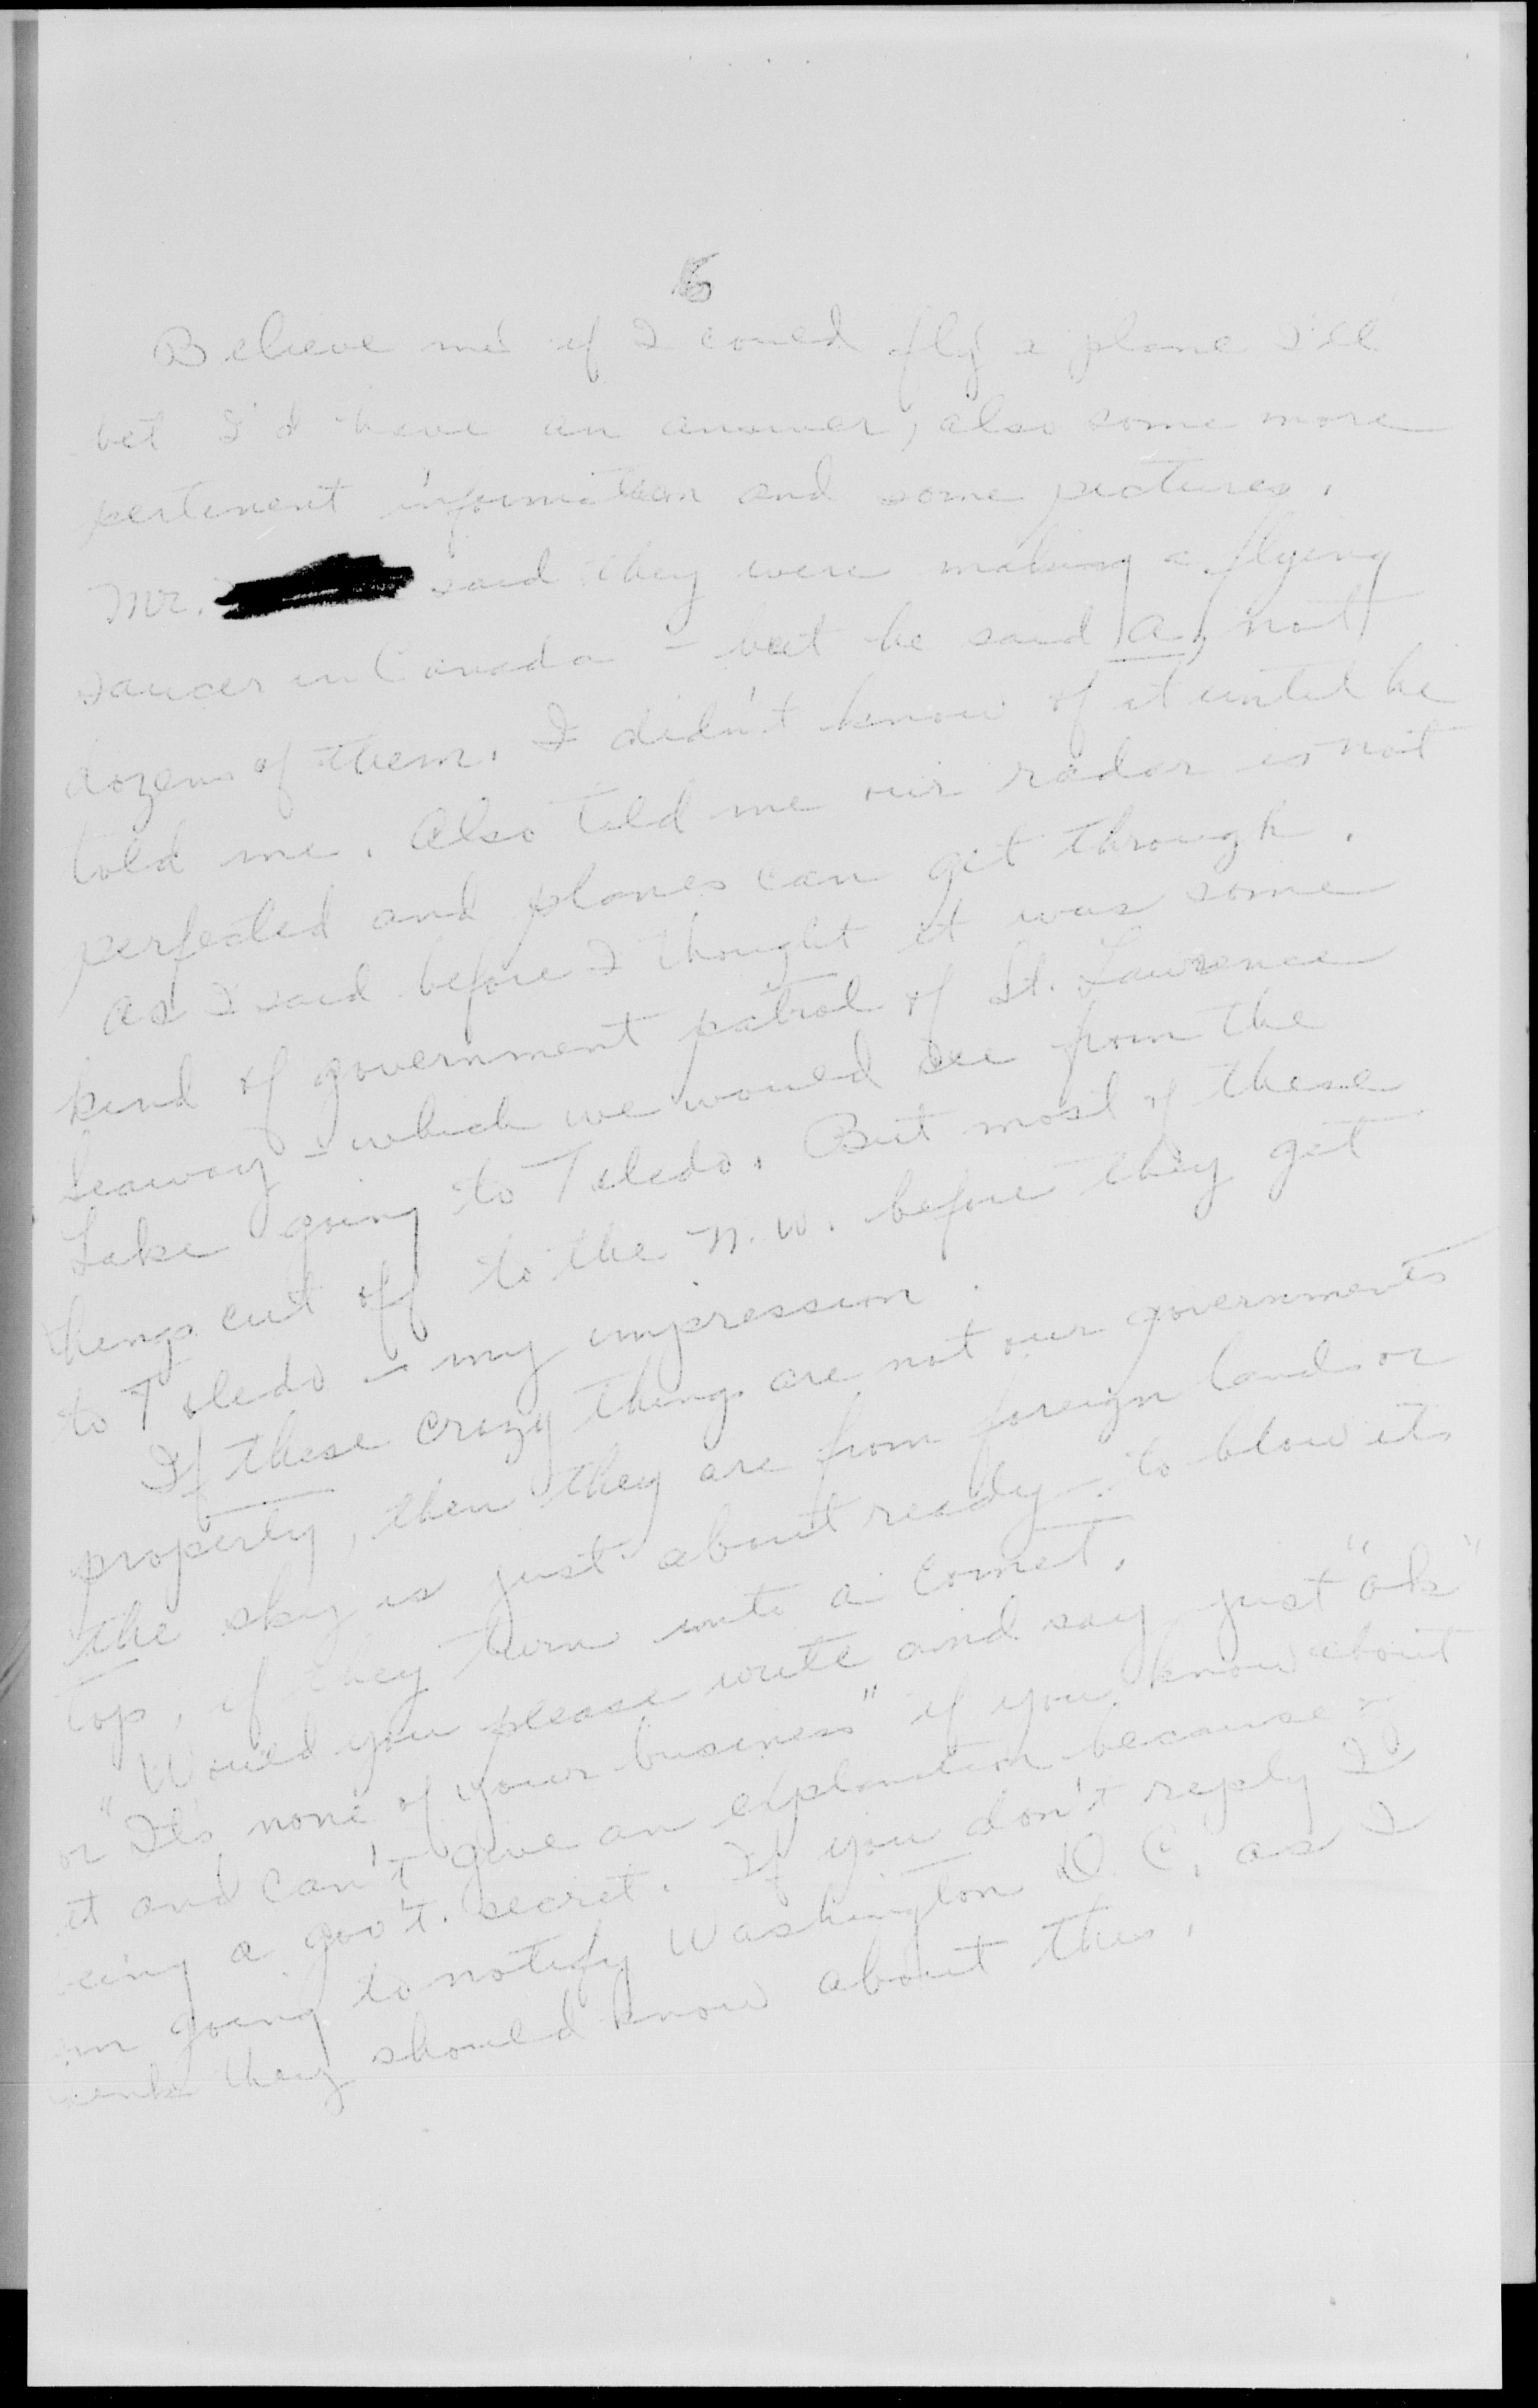 Believe me if I could fly a plane I'll
bet I'd have an answer, also some more
pertinent information and some pictures.
Mr. said they were making a flying
saucer in Canada - but he said a, not
dozens of them. I didn't know of it until he
told me. Also told me our radar is not
perfected and planes can get through.
As I said before I thought it was some
kind of government patrol of St. Lawrence
Seaway - which we would see from the
Lake going to Toledo. But most of these
things cut off to the N.W. before they get
to Toledo - my impression.
If these crazy things are not our governments
property, then they are from foreign lands or
the sky is just about ready to blow its
top, if they turn into a comet.
Would you please write and say just "ok"
or "It's none of your business" if you know about
it and can't give an explanation because
being a gov't. secret. If you don't reply I
am going to notify Washington D.C. as I
think they should know about this.